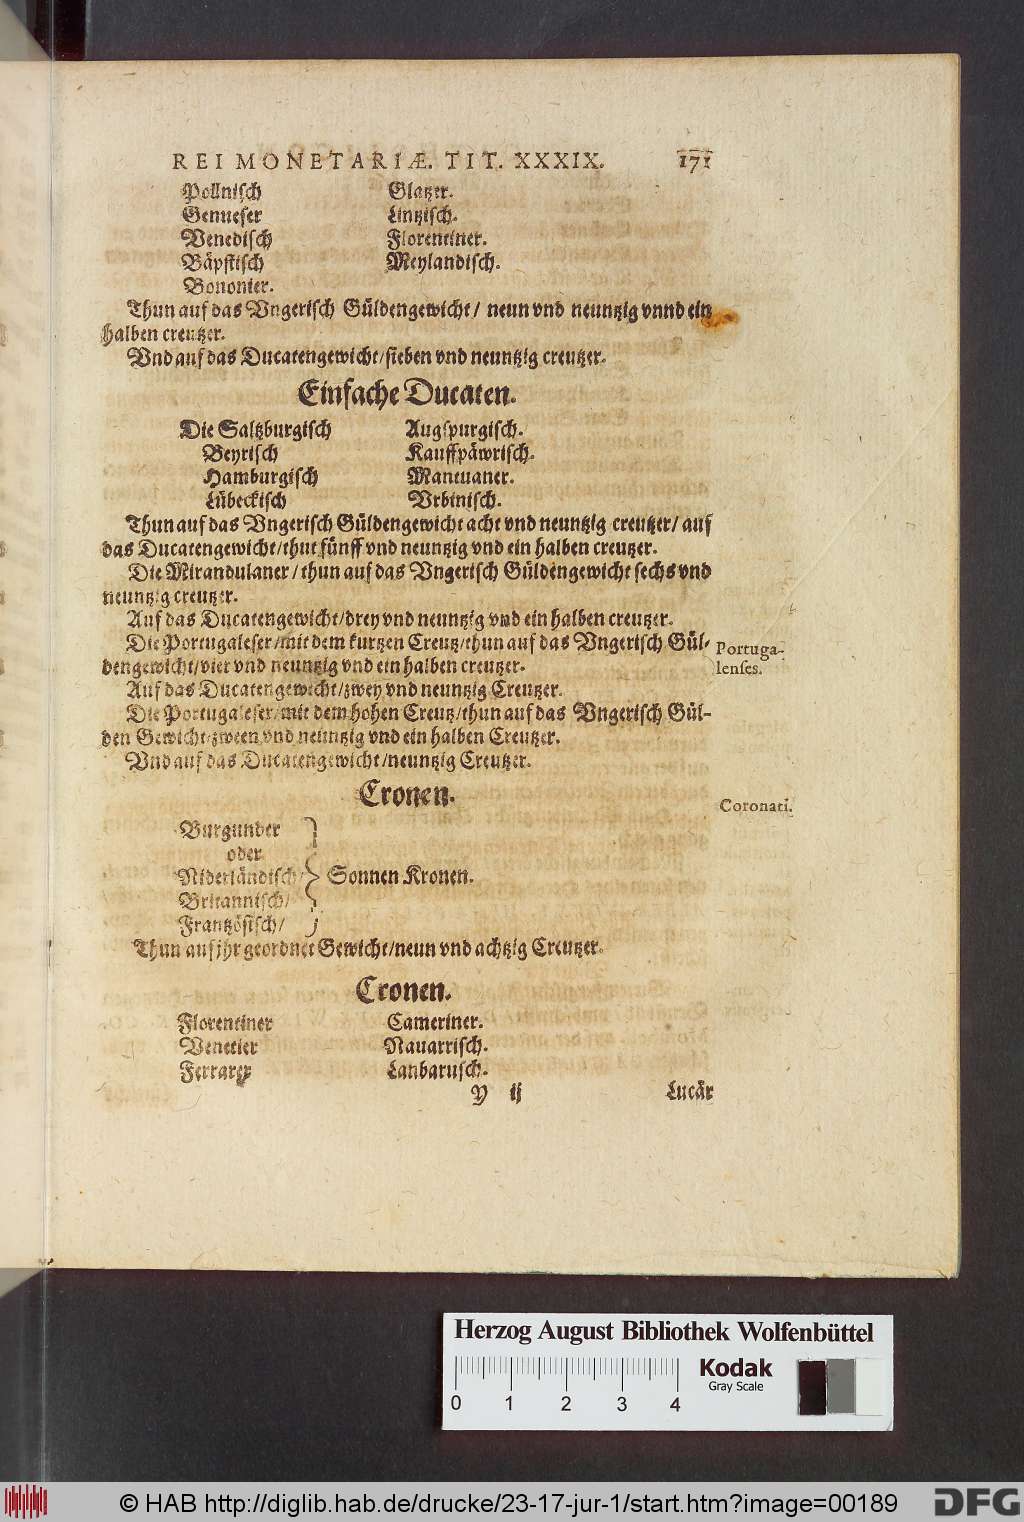 REI MONETARIÆ. TIT. XXXIX. 171
Pollnisch Glatzer.
Genueser Lintzisch.
Venedisch Florentiner.
Bäpstisch Meylandisch.
Bononier.
Thun auf das Vngerisch Güldengewicht/ neun vnd neuntzig vnnd ein
halben creutzer.
Vnd auf das Ducatengewicht/sieben vnd neuntzig creutzer.
Einfache Ducaten.
Die Saltzburgisch Augspurgisch.
Beyrisch Kauffpäwrisch.
Hamburgisch Mantuaner.
Lübeckisch Vrbinisch.
Thun auf das Vngerisch Güldengewicht acht vnd neuntzig creutzer/ auf
das Ducatengewicht/thut fünff vnd neuntzig vnd ein halben creutzer.
Die Mirandulaner/ thun auf das Vngerisch Güldengewicht sechs vnd
neuntzig creutzer.
Auf das Ducatengewicht/drey vnd neuntzig vnd ein halben creutzer.
Die Portugaleser/mit dem kurtzen Creutz/thun auf das Vngerisch Gül-
dengewicht/vier vnd neuntzig vnd ein halben creutzer.
Portuga-
lenses.
Auf das Ducatengewicht/zwey vnd neuntzig Creutzer.
Die Portugaleser/mit dem hohen Creutz/thun auf das Vngerisch Gül-
den Gewicht/zween vnd neuntzig vnd ein halben Creutzer.
Vnd auf das Ducatengewicht/neuntzig Creutzer.
Cronen.
Coronati.
Burgunder
oder
Niderländisch/ Sonnen Kronen.
Britannisch/
Frantzösisch/
Thun auf jhr geordnet Gewicht/neun vnd achtzig Creutzer.
Cronen.
Florentiner Cameriner.
Venetier Nauarrisch.
Ferrarer Lanbarusch.
Y ij Lucär
Herzog August Bibliothek Wolfenbüttel
Kodak
Gray Scale
0 1 2 3 4
© HAB http://diglib.hab.de/drucke/23-17-jur-1/start.htm?image=00189
DFG